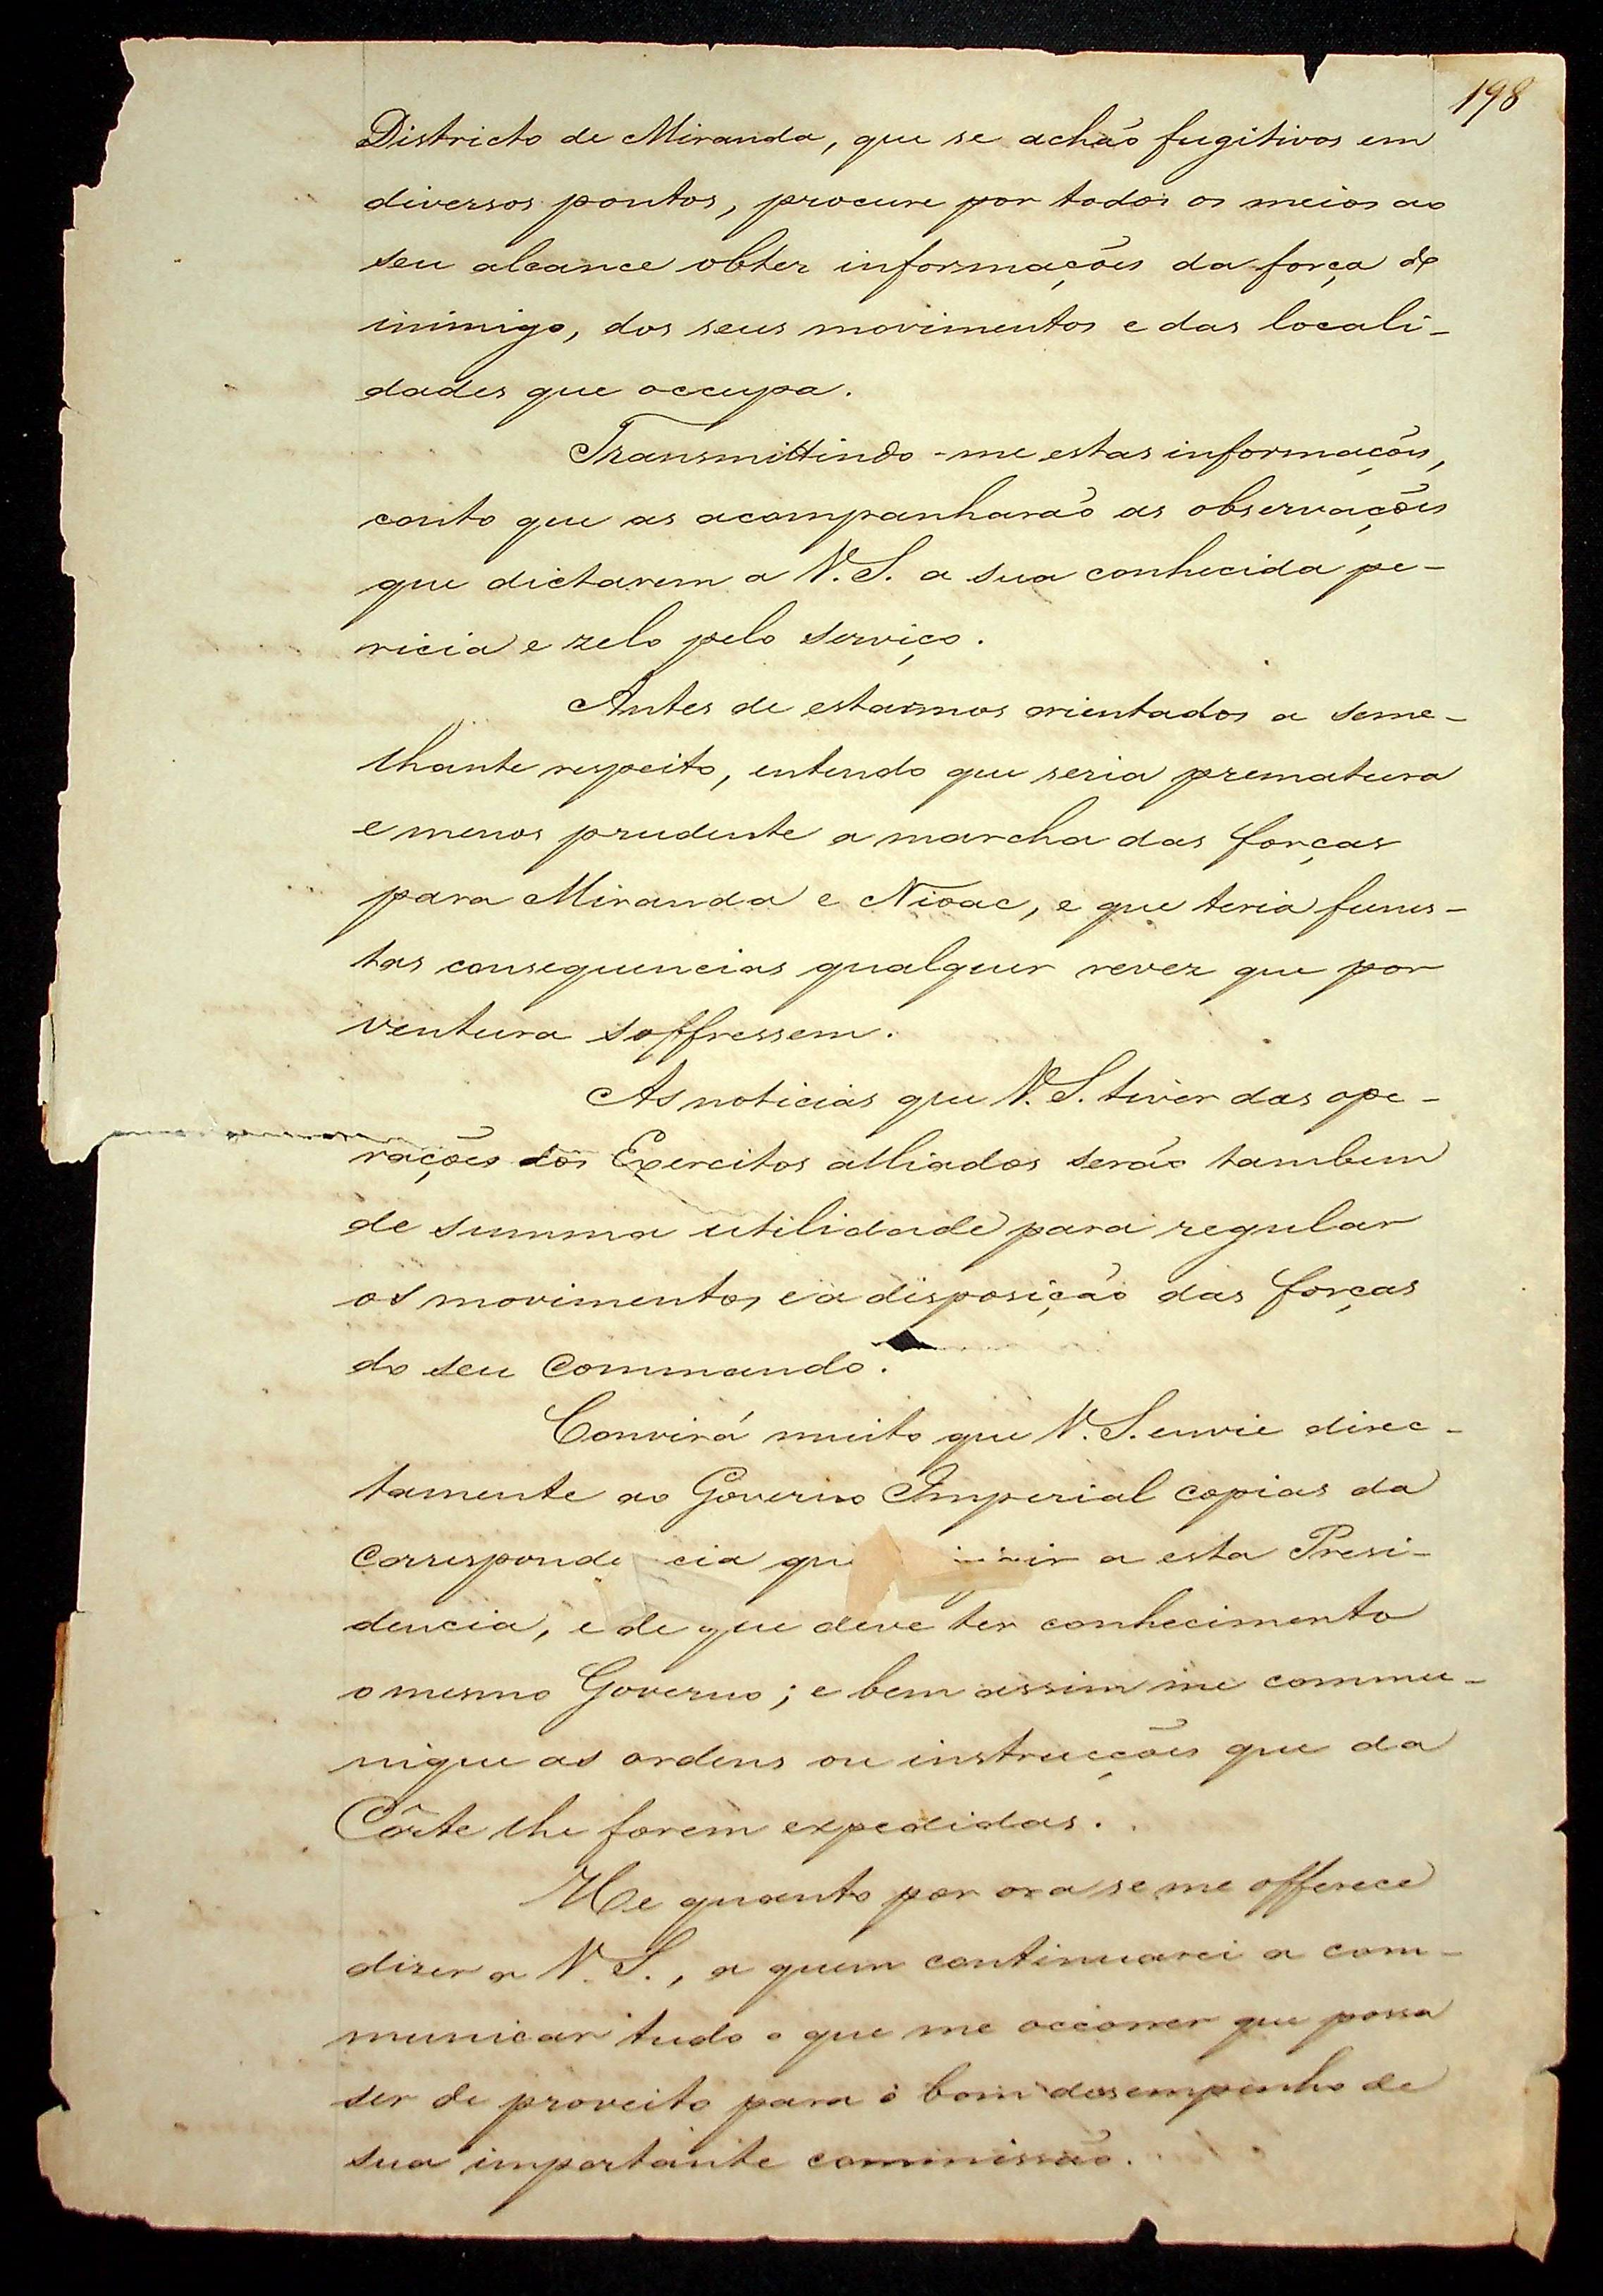 198
Districto de Miranda, que se achão fugitivos em
diversos pontos, procure por todos os meios ao
seu alcance obter informações da força do
inimigo, dos seus movimentos e das locali-
dades que occupa.
Transmittindo-me estas informações,
conto que as acompanharão as observações
que dictarem a V. S. a sua conhecida pe-
ricia e zelo pelo serviço.
Antes de estarmos orientados a seme-
lhante respeito, entendo que seria prematura
e menos prudente a marcha das forças
para Miranda e Nioac, e que teria funes-
tas consequencias qualquer revez que por
ventura soffressem.
As noticias que V. S. tiver das ope-
rações dos Exercitos alliados serão tambem
de summa utilidade para regular
os movimentos e a disposição das forças
do seu commando.
Convirá muito que V. S. envie direc-
tamente ao Governo Imperial copias da
a esta Presi-
dencia, e de que deve ter conhecimento
o mesmo Governo; e bem assim me commu-
nique as ordens ou instrucções que da
Côrte lhe forem expedidas.
He quanto por ora se me offerece
dizer a V. S., a quem continuarei a com-
municar tudo o que me occorrer que possa
ser de proveito para o bom desempenho de
sua importante commissão.